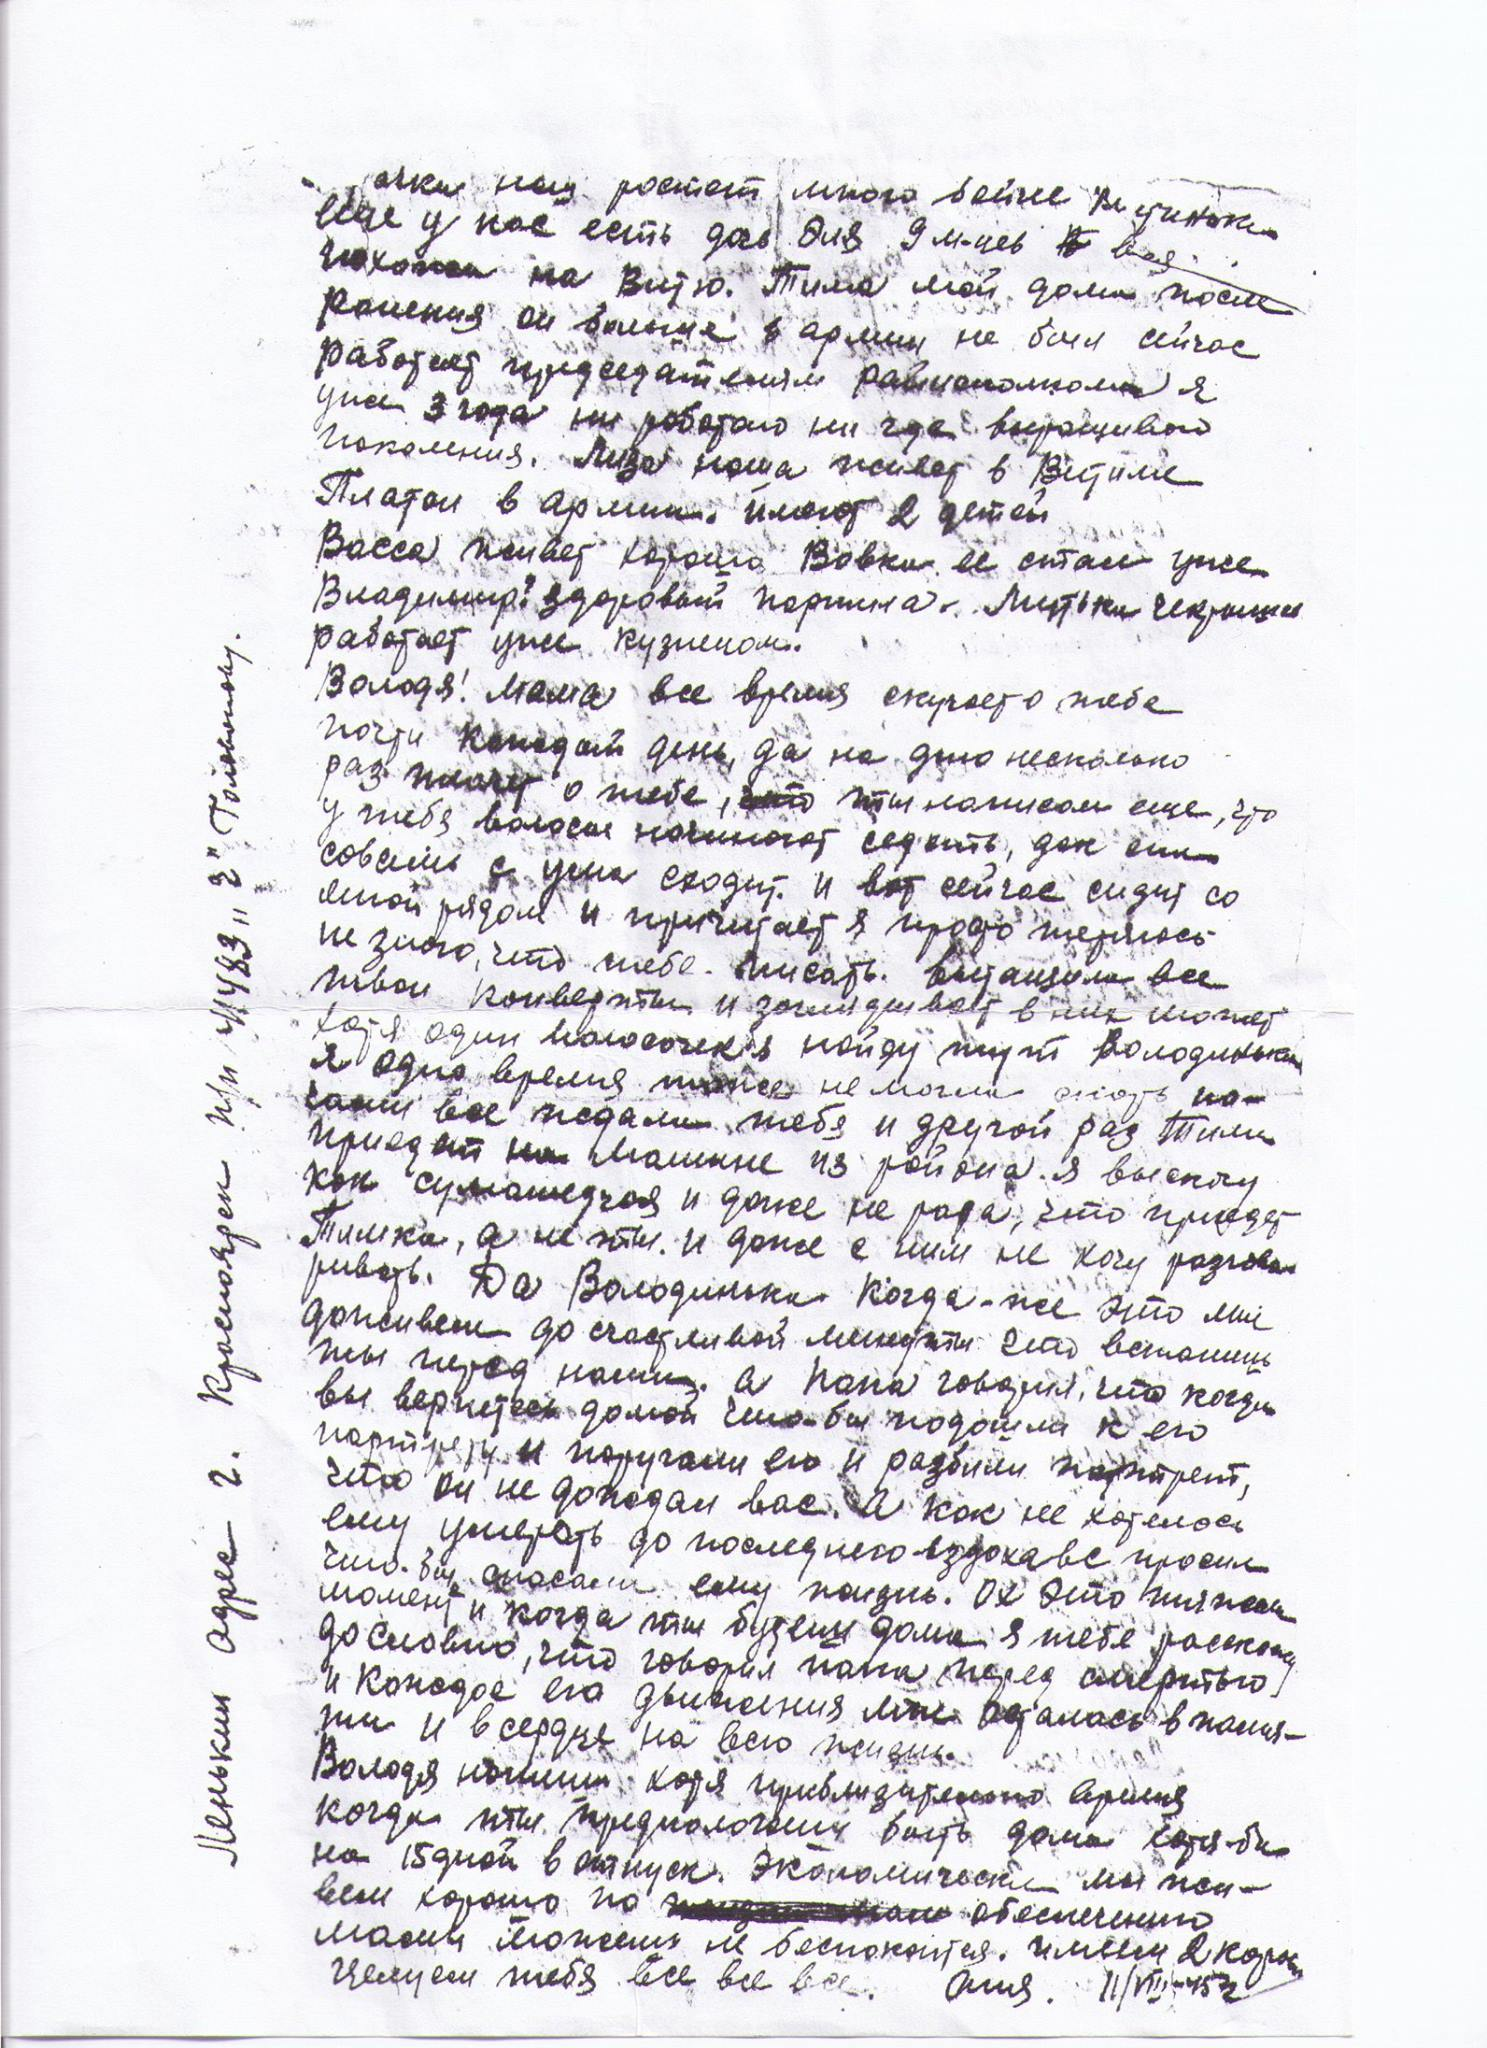 очка наш растет много бойче Витиньки
еще у нас есть дочь Эля 9 м-цев вся
похожа на Витю. Тима мой дома после
ранения он больше в армии не был сейчас
работает председателям райисполкома я
уже 3 года ни работаю ни где выращиваю
поколения. Лиза наша живет в Витиме
Платон в армии. имеют 2 детей
Васса живет хорошо Вовка ее стал уже
Владимир! здоровый парнина. Митька
работает уже кузнецом.
Володя! мама все время скучает о тебе
почти каждый день, да на дню несколько
раз плачет о тебе, что ты написал еще, что
у тебя волосы начинают седеть, дак она
совсем с ума сходит. и вот сейчас сидит со
мной рядом и причитает я просто теряюсь
не знаю, что тебе писать. вытащила все
твои конверты и заглядывает в них может
хотя один волосочек я найду тут Володиньки
я одно время тоже не могла спать но-
чами все ждала тебя и другой раз Тима
приедет на машине из района я выскочу
как сумашедчая и даже не рада, что приедет
Тимка, а не ты. и даже с ним не хочу разгова
ривать. Да Володинька когда-же это мы
доживем до счастливой менуты что встанишь
ты перед нами. а папа говорил, что когда
вы вернетесь домой что-бы подошли к его
партрету и поругали его и разбили партрет,
что он не дождал вас. А как не хотелось
ему умерать до последнего вздоха все просил
что-бы спасали ему жизнь. Ох это тяжели
момент и когда ты будеш дома я тебе раскажу
дословно, что говорил папа перед смертью
и каждое его движения мне осталась в памя-
ти и в сердце на всю жизнь.
Володя напиши хотя приблизительно время
когда ты предпологаеш быть дома хотя-бы
на 15 дней в отпуск. Экономически мы жи-
вем хорошо по обеспечению
мамы можеш не беспокоится. имеем 2 коров
Целуем тебя все все все. Аня. 11/VIII-45 г
Ленькин адрес г. Красноярск п/я 4483 "З" Голованову.